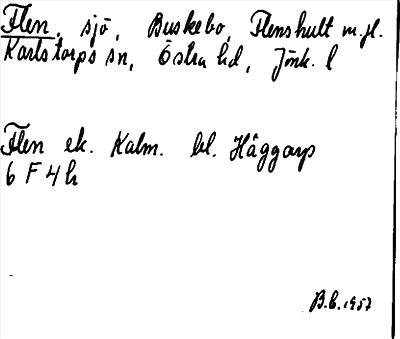 Flen, sjö, Buskebo, Flenshult m.fl.
Karlstorps sn, Östra hd, Jönk. l
Flen ek. Kalm. bl. Häggarp
6 F 4 h
B.E. 1957